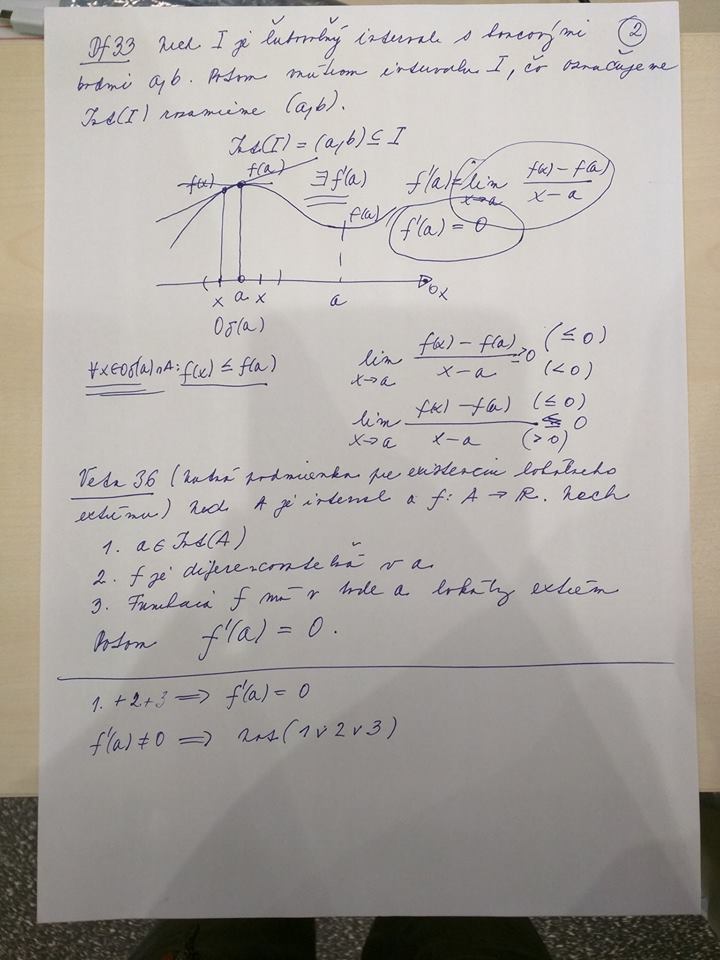 2
Df 33 Nech I je ľubovoľný interval s koncovými
bodmi a, b. Potom vnútrom intervalu I, čo označujeme
Int(I) rozumieme (a,b).
Int(I) = (a,b) ⊆ I
f(x) f(a) ∃ f'(a) f'(a) = lim x→a (f(x) − f(a))/(x − a)
f(a) f'(a) = 0
( x a x ) a 0x
Oδ(a)
∀x∈Oδ(a)∩A: f(x) ≤ f(a)
lim x→a (f(x) − f(a))/(x − a) ≥ 0 (≤ 0) (< 0)
lim x→a (f(x) − f(a))/(x − a) ≤ 0 (≤ 0) (> 0)
Veta 36 (Nutná podmienka pre existenciu lokálneho
extrému) Nech A je interval a f: A → R. Nech
1. a ∈ Int(A)
2. f je diferencovateľná v a
3. Funkcia f má v bode a lokálny extrém
Potom f'(a) = 0.
1. + 2 + 3 ⟹ f'(a) = 0
f'(a) ≠ 0 ⟹ not (1 ∨ 2 ∨ 3)